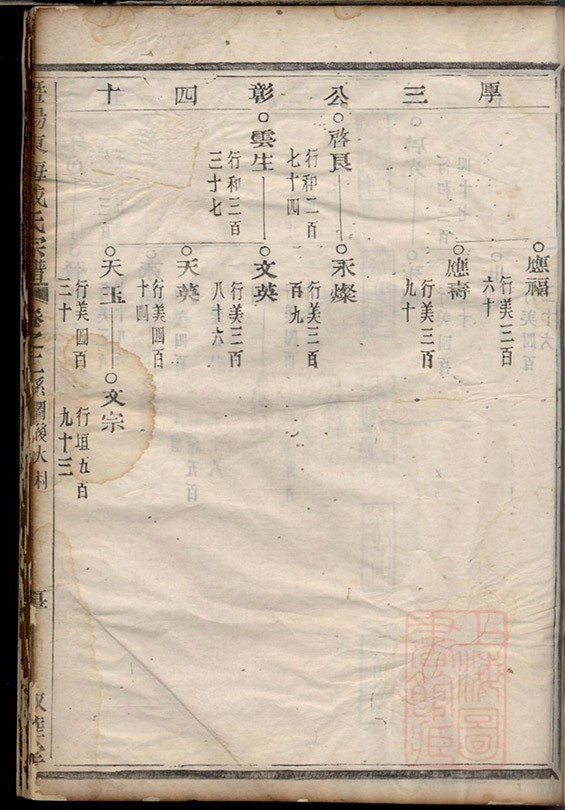 厚三公彰四十
應福
行美三百
六十
應壽
行美三百
九十
啓良
行和二百
七十四
永燦
行美三百
百九
雲生
行和三百
三十七
文英
行美三百
八十六
天英
行美四百
十四
天玉
行美四百
三十
文宗
行垣五百
九十三
暨陽東海戚氏宗譜
卷之二系圖後大村
上海圖書館藏